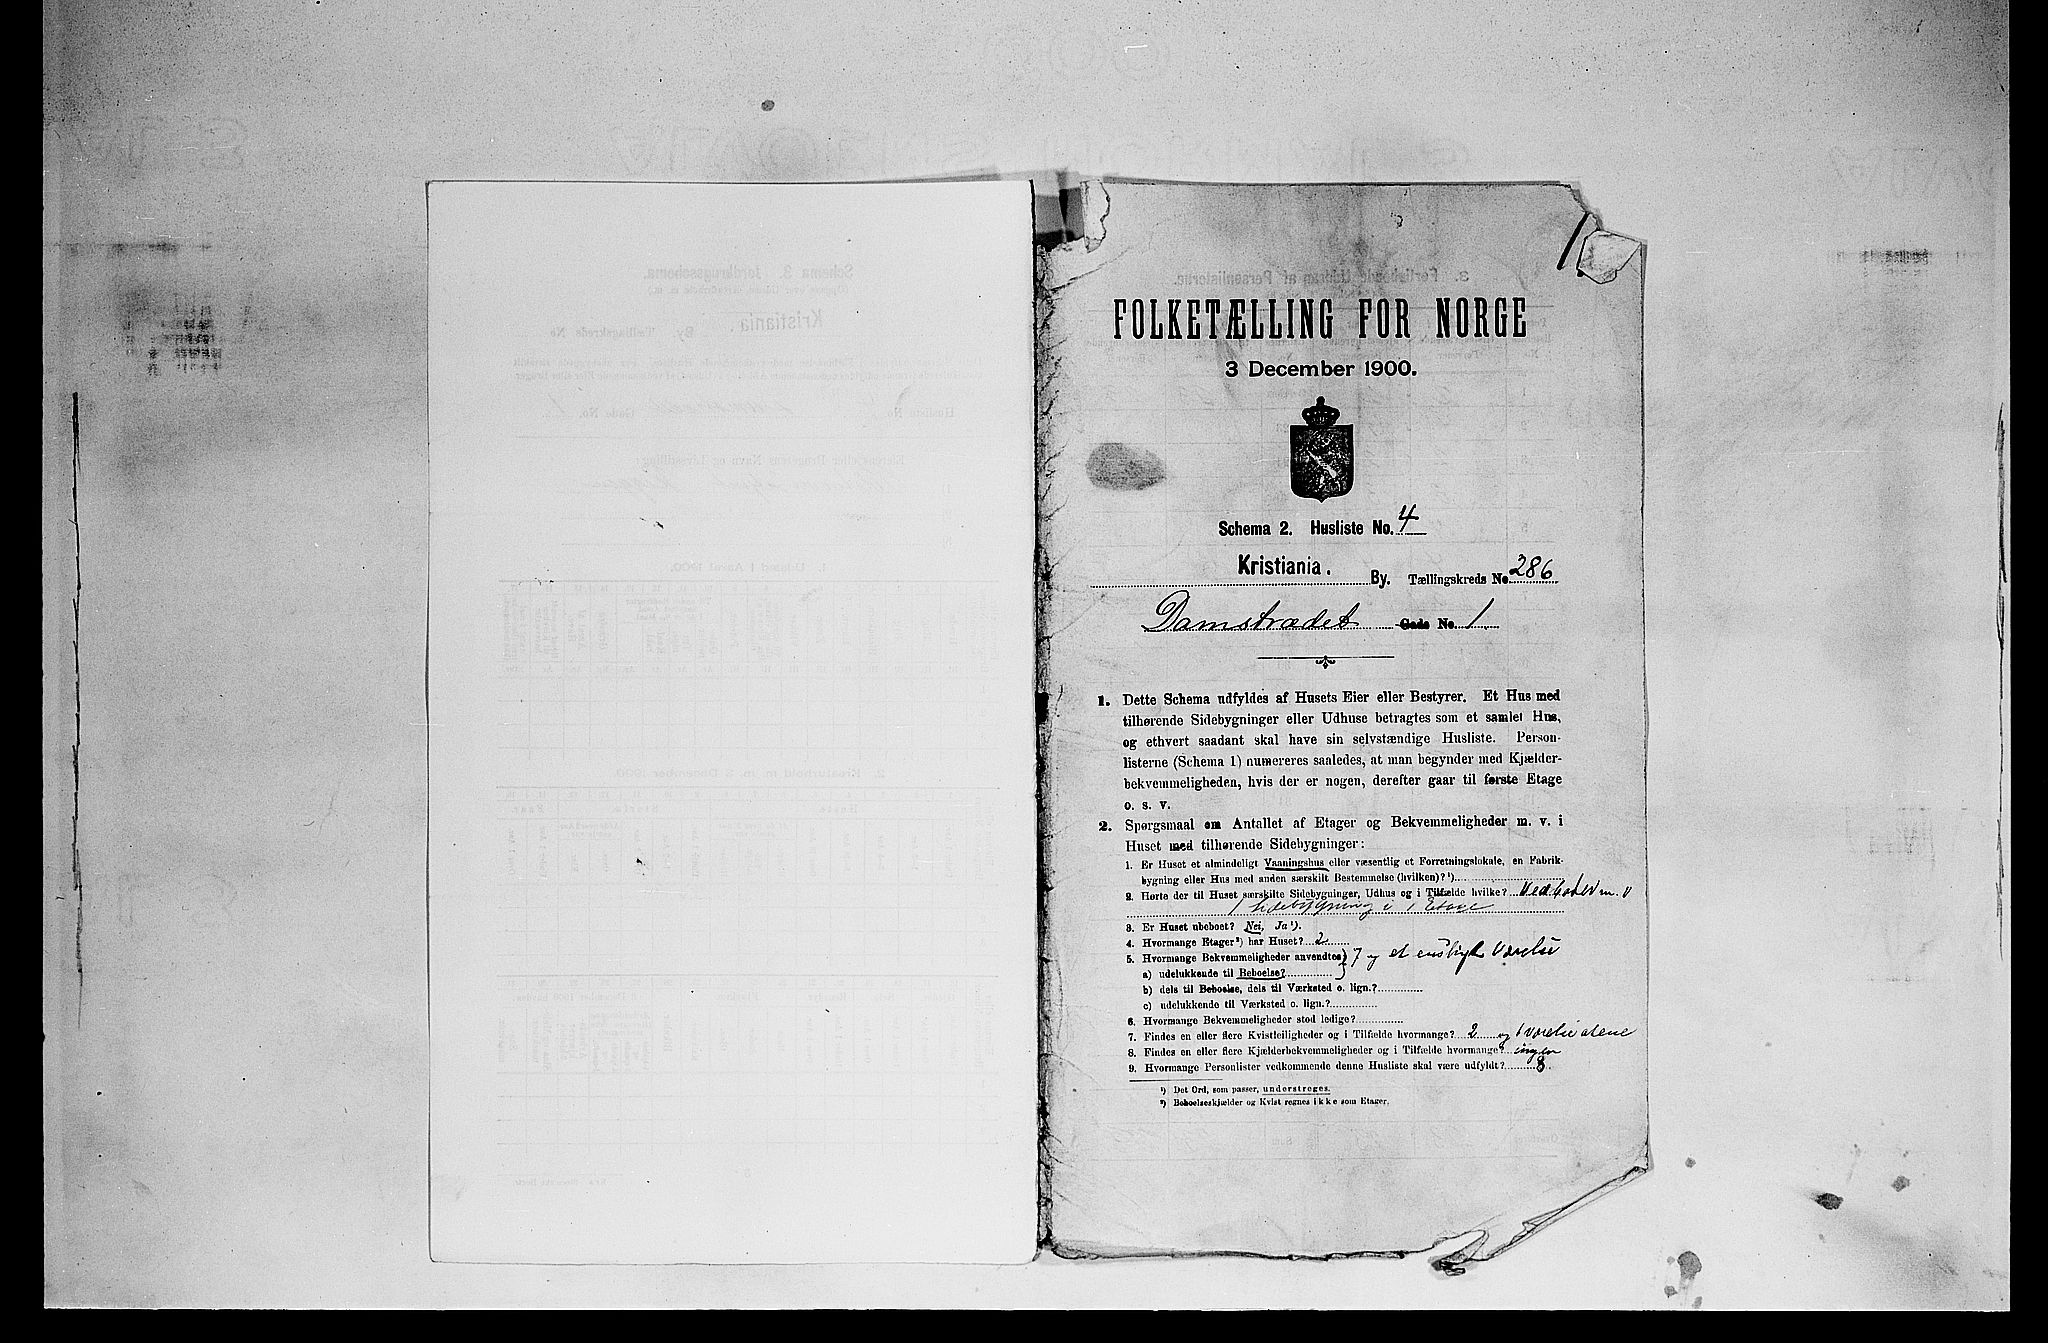 1.
FOLKETÆLLING FOR NORGE
3 December 1900.
Schema 2. Husliste No. 4
Kristiania. By. Tællingskreds No. 286
Damstrædet Gade No. 1
1. Dette Schema udfyldes af Husets Eier eller Bestyrer. Et Hus med
tilhørende Sidebygninger eller Udhuse betragtes som et samlet Hus,
og ethvert saadant skal have sin selvstændige Husliste. Person-
listerne (Schema 1) numereres saaledes, at man begynder med Kjælder-
bekvemmeligheden, hvis der er nogen, derefter gaar til første Etage
o. s. v.
2. Spørgsmaal om Antallet af Etager og Bekvemmeligheder m. v. i
Huset med tilhørende Sidebygninger:
1. Er Huset et almindeligt Vaaningshus eller væsentlig et Forretningslokale, en Fabrik-
bygning eller Hus med anden særskilt Bestemmelse (hvilken)?¹)
2. Hørte der til Huset særskilte Sidebygninger, Udhus og i Tilfælde hvilke? m. v
1 sidebygning i 1 Etage
3. Er Huset ubeboet? Nei, Ja¹).
4. Hvormange Etager²) har Huset? 2
5. Hvormange Bekvemmeligheder anvendtes } 7 og et ensligt Værelse
a) udelukkende til Beboelse?
b) dels til Beboelse, dels til Værksted o. lign.?
c) udelukkende til Værksted o. lign.?
6. Hvormange Bekvemmeligheder stod ledige?
7. Findes en eller flere Kvistleiligheder og i Tilfælde hvormange? 2 og 1 værelse alene
8. Findes en eller flere Kjælderbekvemmeligheder og i Tilfælde hvormange? ingen
9. Hvormange Personlister vedkommende denne Husliste skal være udfyldt? 8.
¹) Det Ord, som passer, understreges.
²) Beboelseskjælder og Kvist regnes ikke som Etager.